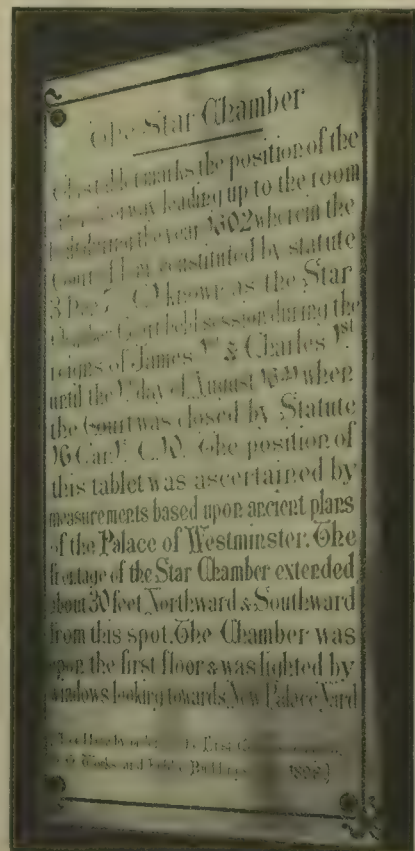 The Star Chamber
This tablet marks the position of the
stairway leading up to the room
built during the year 1602 wherein the
Court constituted by statute
3 Hen 7 C.1 known as the Star
Chamber Court held session during the
reigns of James 1st & Charles 1st
until the 1st day of August 1641 when
the Court was closed by Statute
16 Car. 1. C.10. The position of
this tablet was ascertained by
measurements based upon ancient plans
of the Palace of Westminster. The
frontage of the Star Chamber extended
about 30 feet Northward & Southward
from this spot. The Chamber was
upon the first floor & was lighted by
windows looking towards New Palace Yard
First
Works and Public Buildings